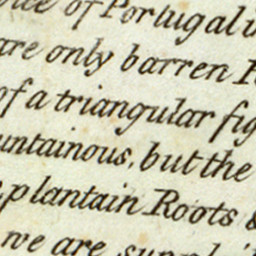 of Portugal
are only barren
of a triangular fig
untainous, but the
plantain Roots &
we are